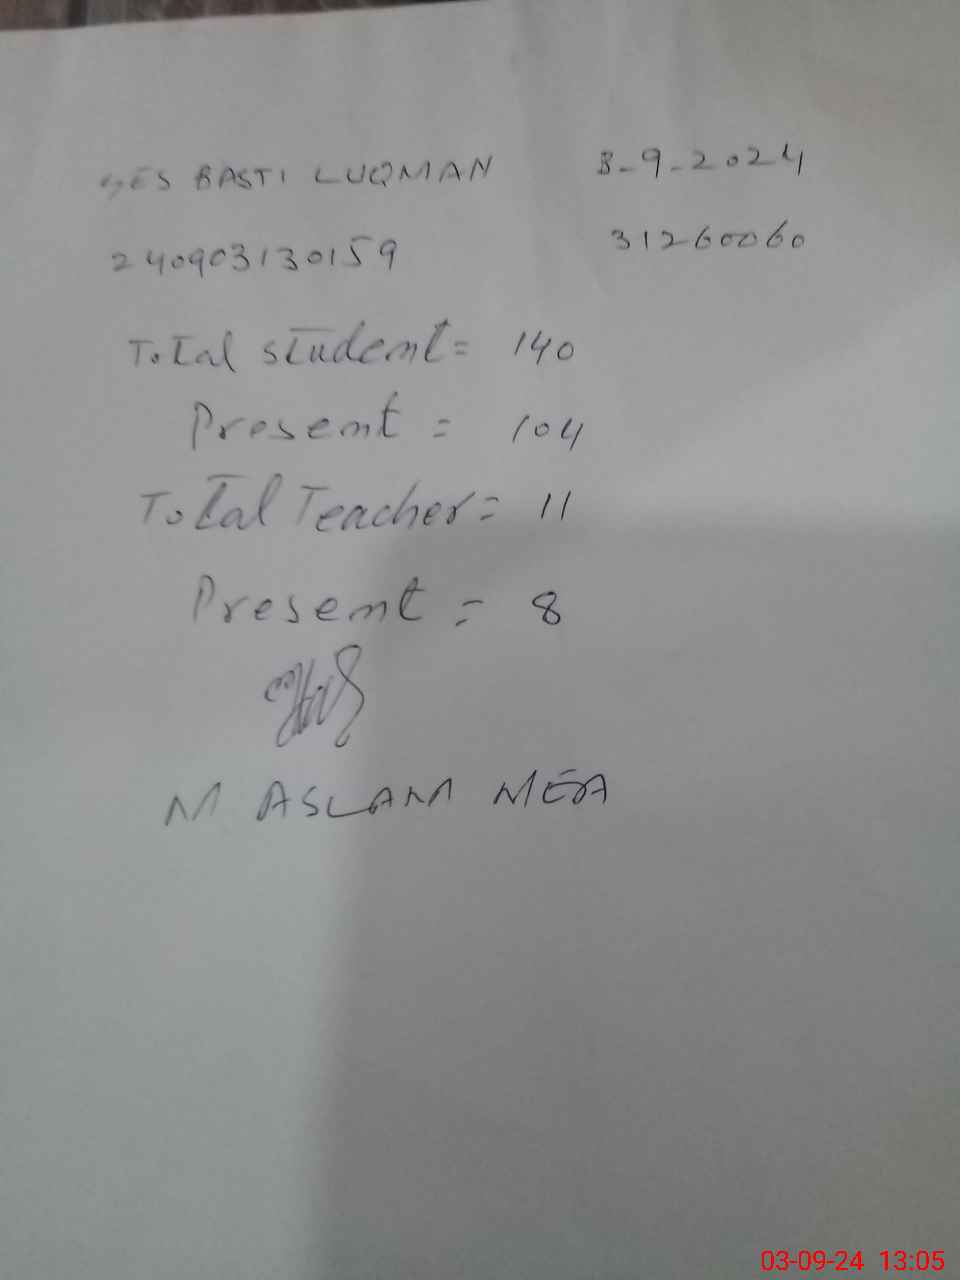 GES BASTI LUQMAN 3-9-2024
240903130159 31260060
Total student = 140
Present = 104
Total Teacher = 11
Present = 8
M ASLAM
03-09-24 13:05